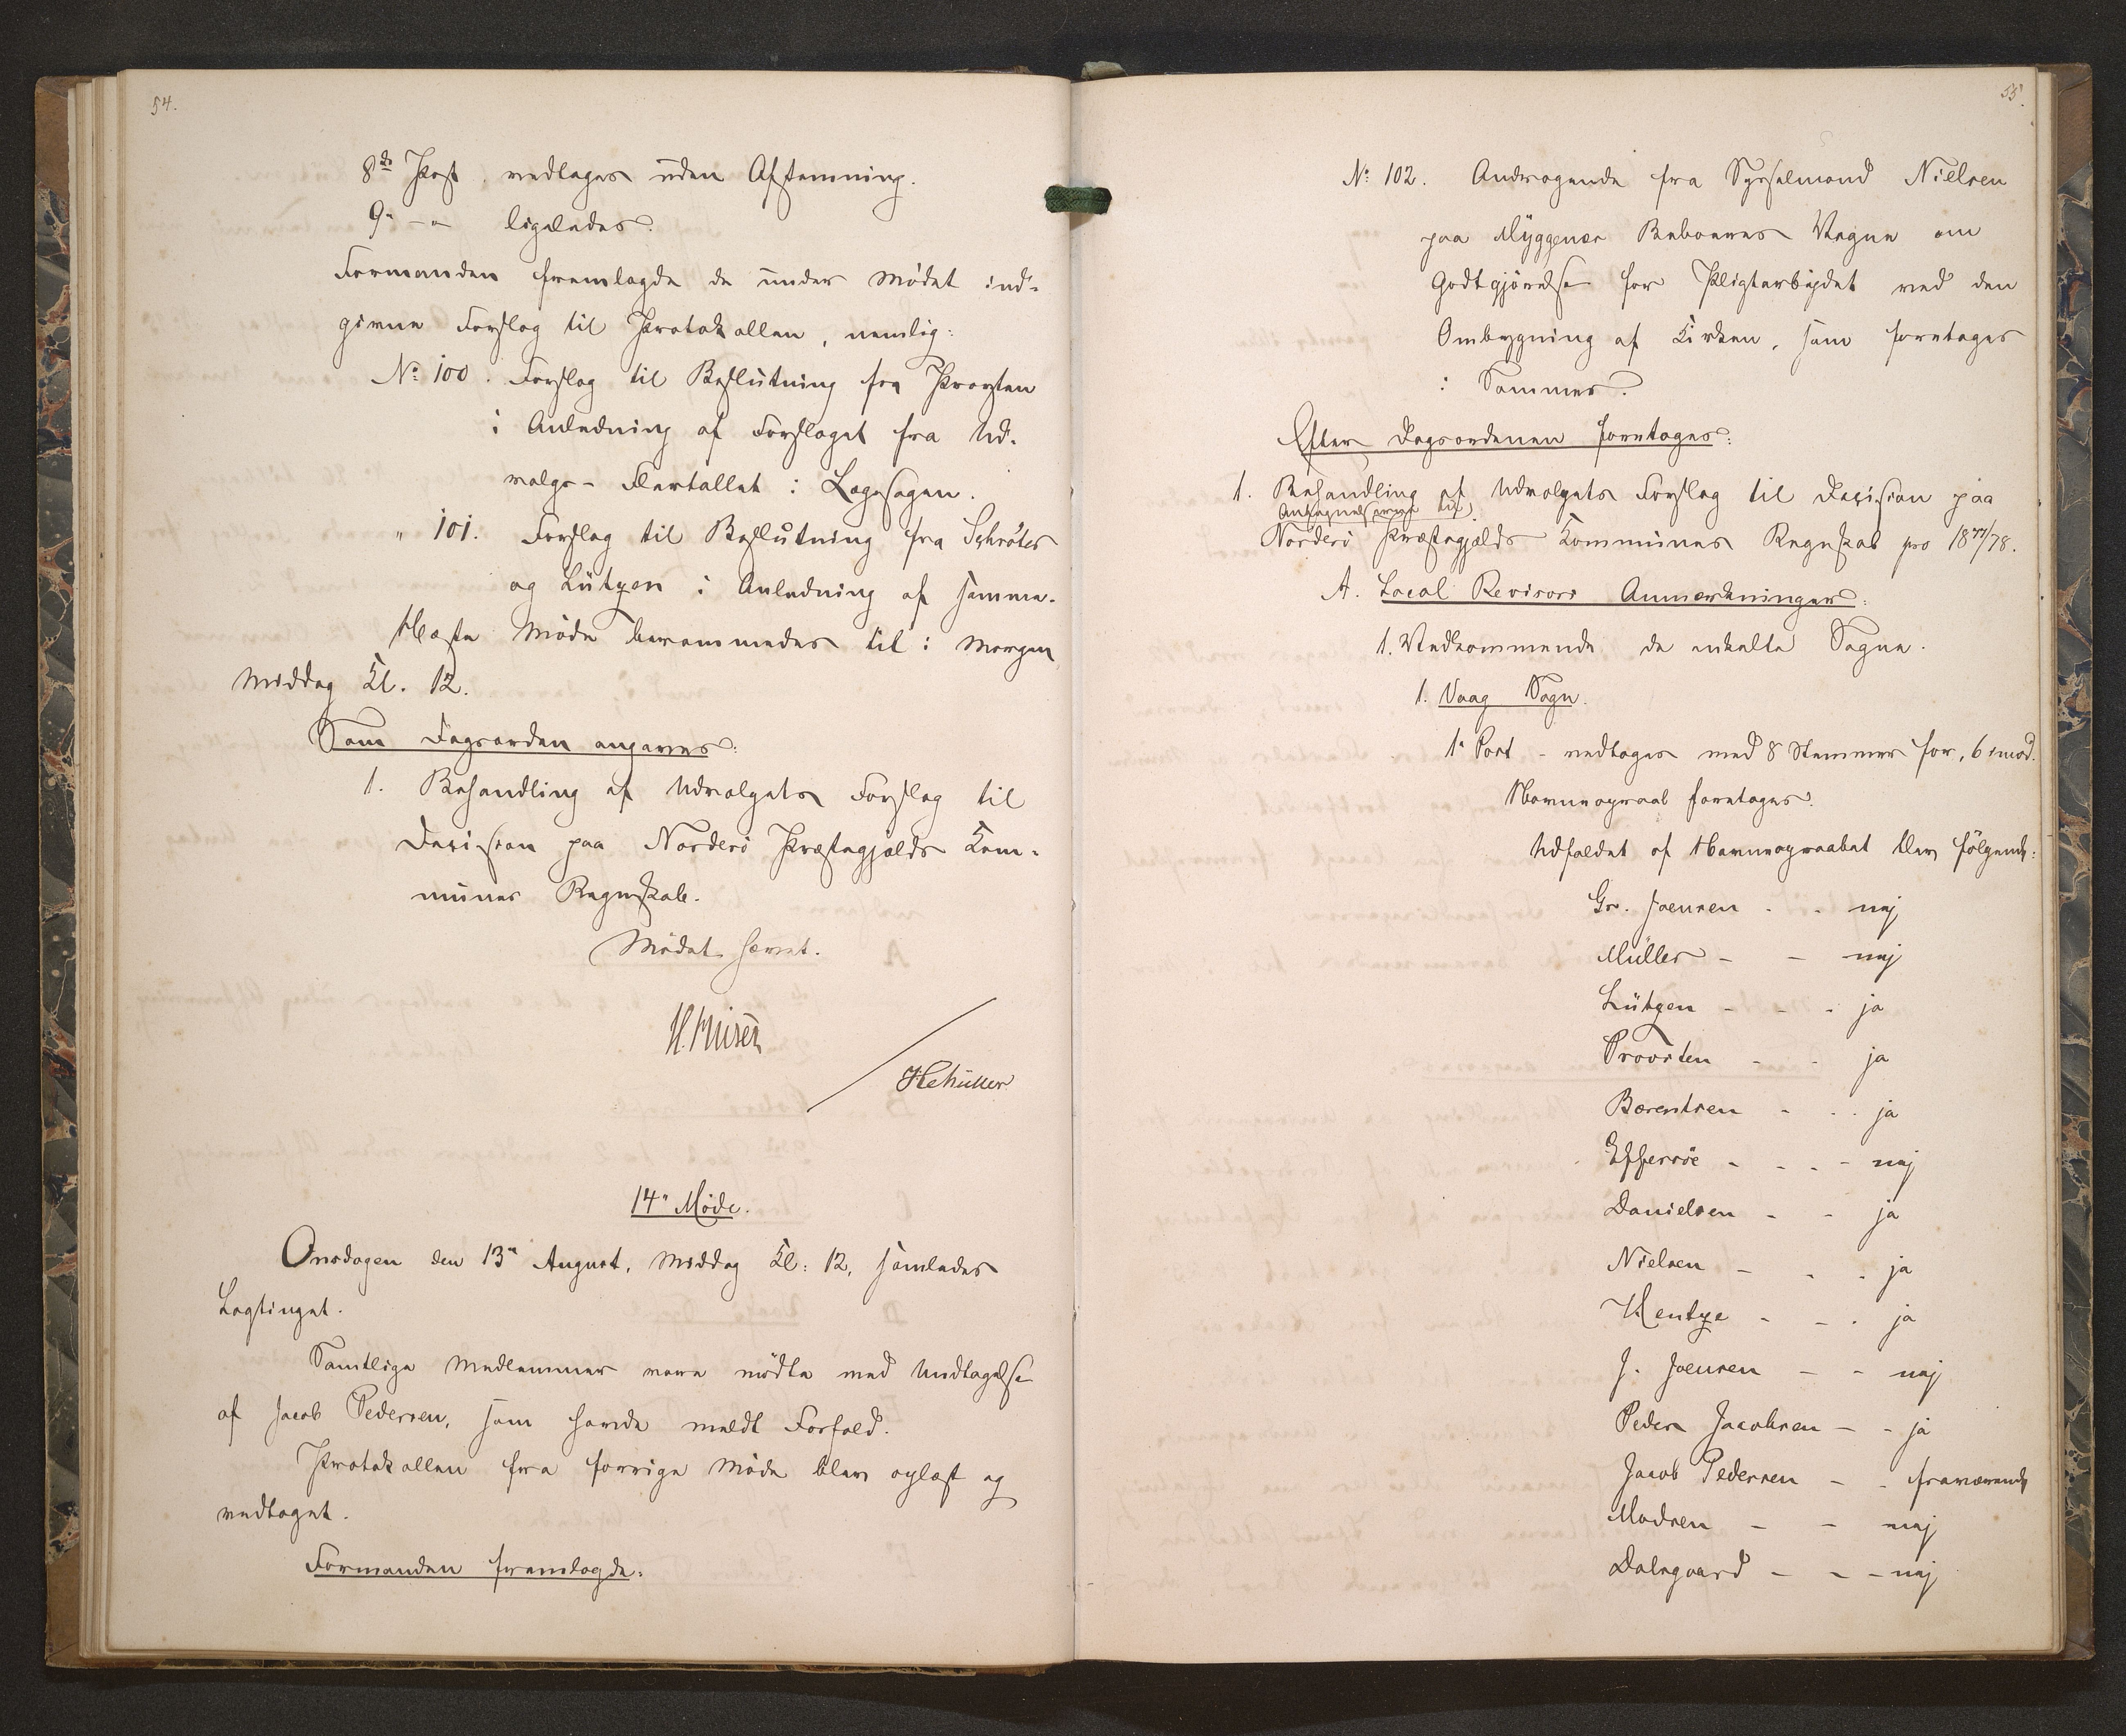 54.
8de Post vedtages uden Afstemning.
9" -"- ligeledes.
Formanden fremlagde de under Mødet ind-
givne Forslag til Protokollen, nemlig:
No 100. Forslag til Beslutning fra Provsten
i Anledning af Forslaget fra Ud-
valgs-Flertallet i Lægesagen.
" 101. Forslag til Beslutning fra Schrøter
og Lützen i Anledning af samme.
Næste Møde berammedes til i Morgen
Middag Kl. 12.
Som Dagsorden angaves:
1. Behandling af Udvalgets Forslag til
Decision paa Norderø Præstegjælds Kom-
munes Regnskab.
Mødet hævet.
HMüller
14" Møde.
Onsdagen den 13" August, Middag Kl: 12, samledes
Lagtinget.
Samtlige Medlemmer vare mødte med Undtagelse
af Jacob Pedersen, som havde meldt Forfald.
Protokollen fra forrige Møde blev oplæst og
vedtaget.
Formanden fremlagde:
55.
No 102. Andragende fra Sysselmand Nielsen
paa Myggenæs Beboeres Vegne om
Godtgjørelse for Pligtarbejdet ved den
Ombygning af Kirken, som foretages
i Sommer.
Efter Dagsordenen foretages:
1. Behandling af Udvalgets Forslag til Decision paa
Antegnelserne til
Norderø Præstegjælds Kommunes Regnskab pro 1877/78.
A. Local Revisors Anmærkninger:
1. Vedkommende de enkelte Sogne.
1. Vaag Sogn.
1" Post - vedtages med 8 Stemmer for, 6 imod.
Navneopraab foretages.
Udfaldet af Navneopraabet blev følgende:
Gr. Joensen - - nej
Müller - - nej
Lützen - - - ja
Provsten - - ja
Bærentsen - - - ja
Effersöe - - - - nej
Danielsen - - ja
Nielsen - - - ja
Wentze - - - ja
J. Joensen - - nej
Peder Jacobsen - - ja
Jacob Pedersen - - fraværende
Madsen - - nej
Dalsgaard - - - nej